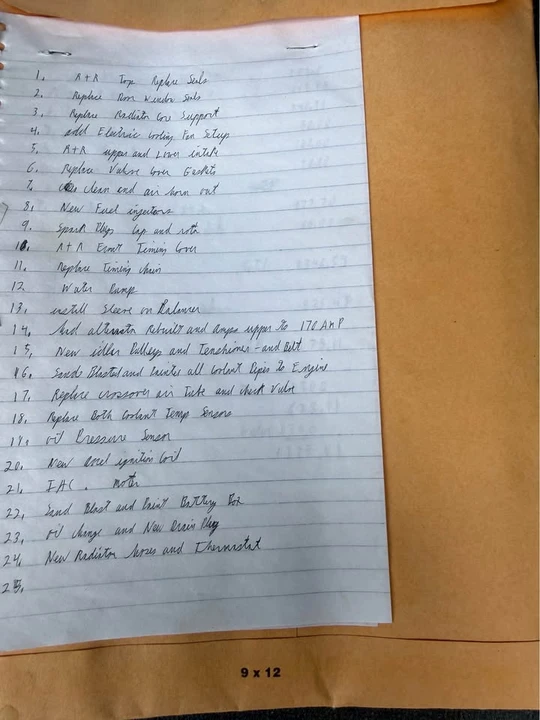 1. R+R Top Replace Seals
2. Replace Door Window Seals
3. Replace Radiator Core Support
4. add Electric Cooling Fan Setup
5. R+R upper and Lower intake
6. Replace Valve Cover Gaskets
7. clean and air horn out
8. New Fuel injectors
9. Spark Plugs Cap and rotor
10. R+R Front Timing Cover
11. Replace Timing chain
12 Water Pump
13. install Sleeve on Balancer
14. had alternator Rebuilt and Amps upper to 170 AmP
15. New idler Pulleys and Tenshioner - and Belt
16. Sands Blasted and Painted all Coolant Pipes to Engine
17. Replace crossover air Tube and check Valve
18. Replace Both Coolant Temp Sensors
19. oil Pressure Sensor
20. New Accel ignition Coil
21. IAC. Motor
22. Sand Blast and Paint Battery Box
23. oil change and New Drain Plug
24. New Radiator hoses and Thermostat
25.
9 x 12